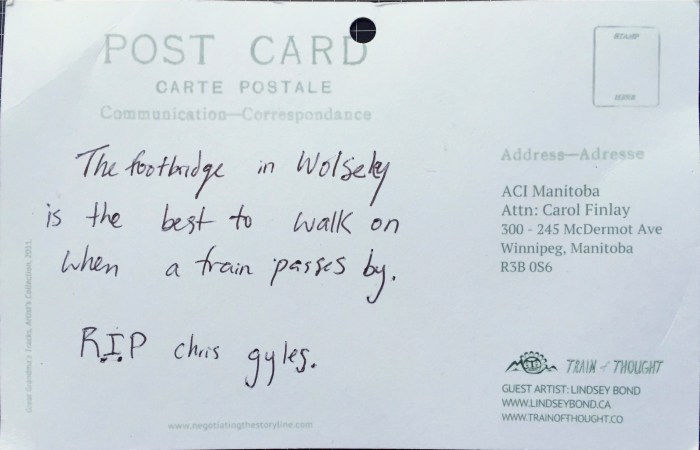 POST CARD
CARTE POSTALE
Communication—Correspondance
The footbridge in Wolsely
is the best to walk on
when a train passes by.
R.I.P chris gyles.
Address—Adresse
ACI Manitoba
Attn: Carol Finlay
300 - 245 McDermot Ave
Winnipeg, Manitoba
R3B 0S6
TRAIN of THOUGHT
GUEST ARTIST: LINDSEY BOND
WWW.LINDSEYBOND.CA
WWW.TRAINOFTHOUGHT.CO
www.negotiatingthestoryline.com
Great Grandma's Tracks, Artist's Collection, 2011.